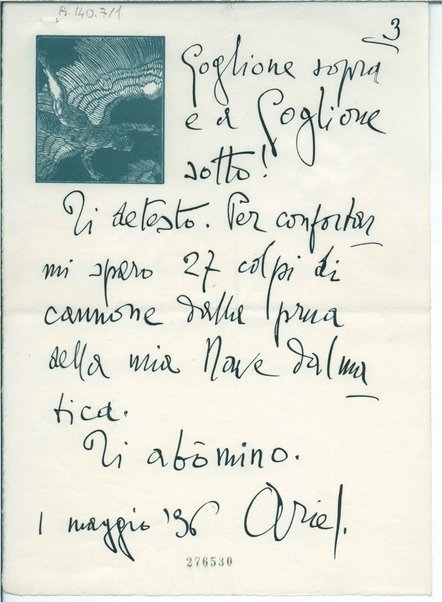 A.140.7/1
3
Goglione sopra
e a Goglione
sotto!
Ti detesto. Per confortar
mi sparo 27 colpi di
cannone dalla prua
della mia Nave dalma
tica.
Ti abòmino.
1 maggio '36 Ariel.
276530